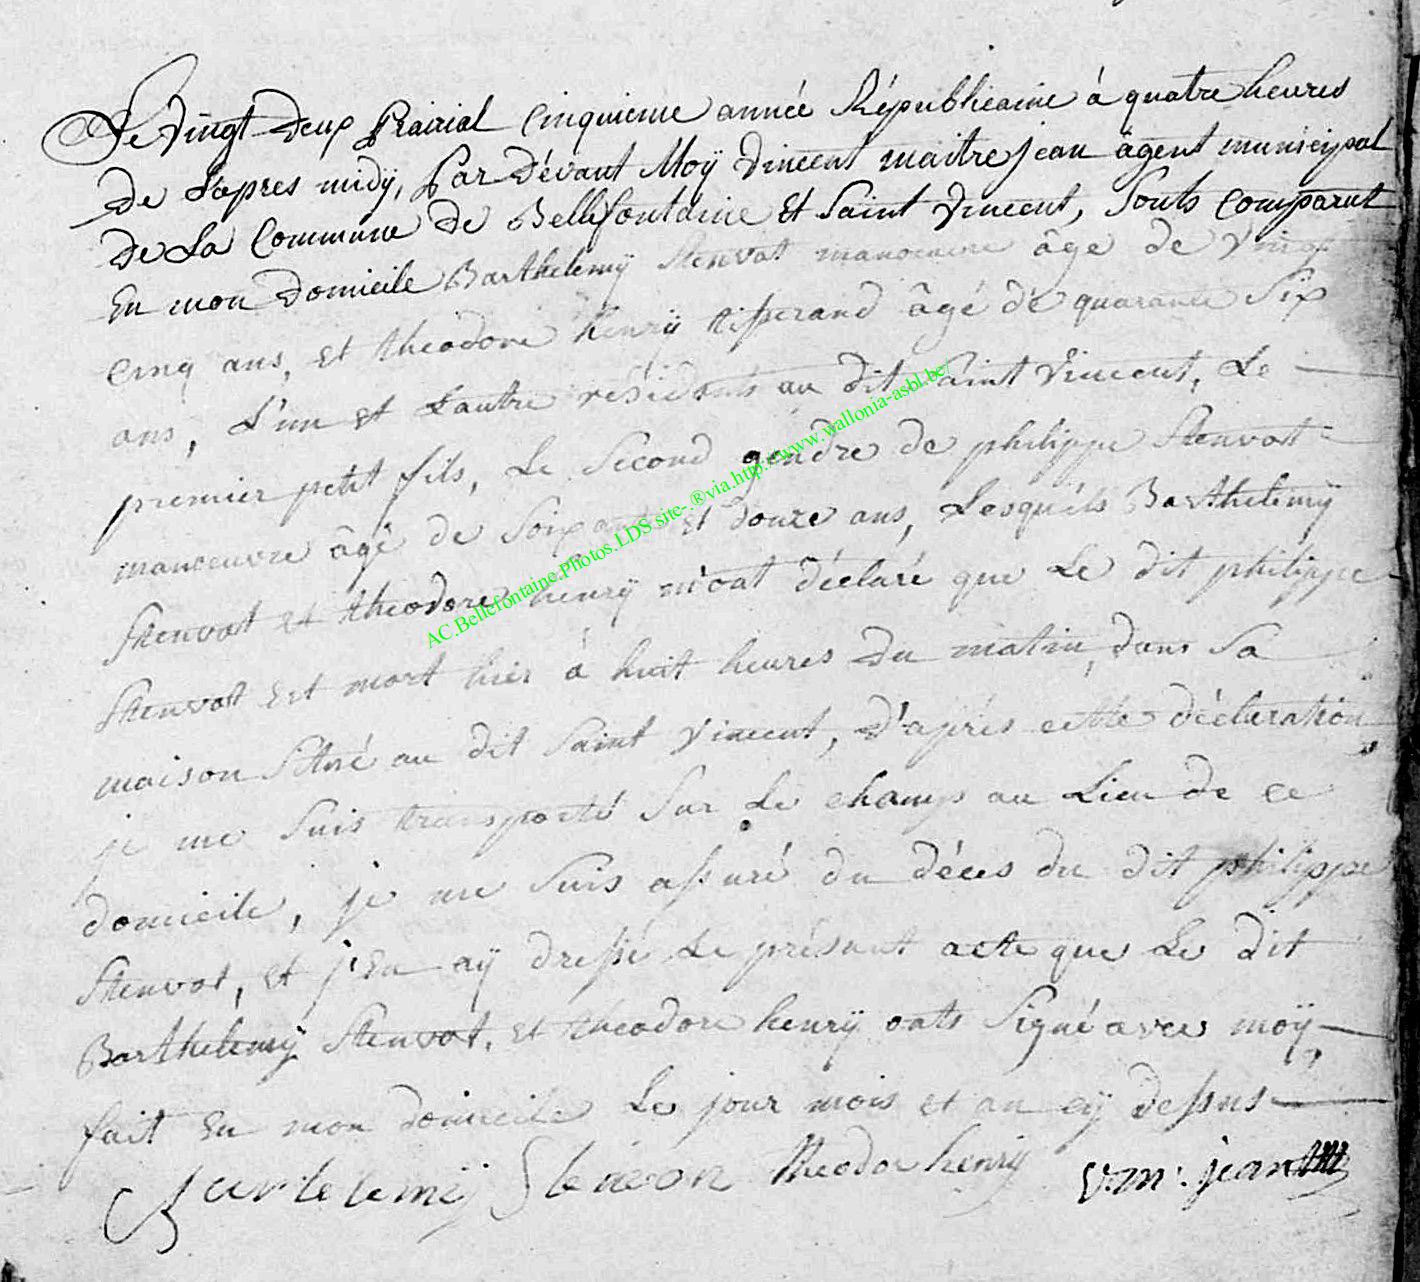 Le vingt deux prairial cinquieme année Républicaine á quatre heures
de l'apres midÿ, par dévant Moÿ vincent maitrejean âgent municipal
de La Commune de Bellefontaine Et Saint vincent, Sonts comparut
En mon Domicile Barthelemÿ Stenvot manoeuvre âge de vingt
cinq ans, Et théodore henrÿ tisserand âgé de quarante Six
ans, L'un Et Lautre résidents au dit Saint vincent, Le
premier petit fils, Le Second gendre de philippe Stenvot
manoeuvre âgé de Soixante Et douze ans, Lesquéls Barthelemÿ
Stenvot Et théodore henrÿ m'ont déclaré que Le dit philippe
Stenvot Est mort hier á huit heures du matin, dans Sa
maison Sitüé au dit Saint vincent, D'aprés cette déclaration,
je me Suis transporté Sur Le champs au Lieu de ce
domicile, je me Suis assuré du décés du dit philippe
Stenvot, Et j'En aÿ dressé Le présent acte que Le dit
Barthelemÿ Stenvot, Et théodore henrÿ onts Signé avec moÿ,
fait En mon domicile Le jour mois et an cÿ dessus
Theodor henrÿ v.m: jean
AC.Bellefontaine.Photos.LDS site-.®via.http://www.wallonia-asbl.be/